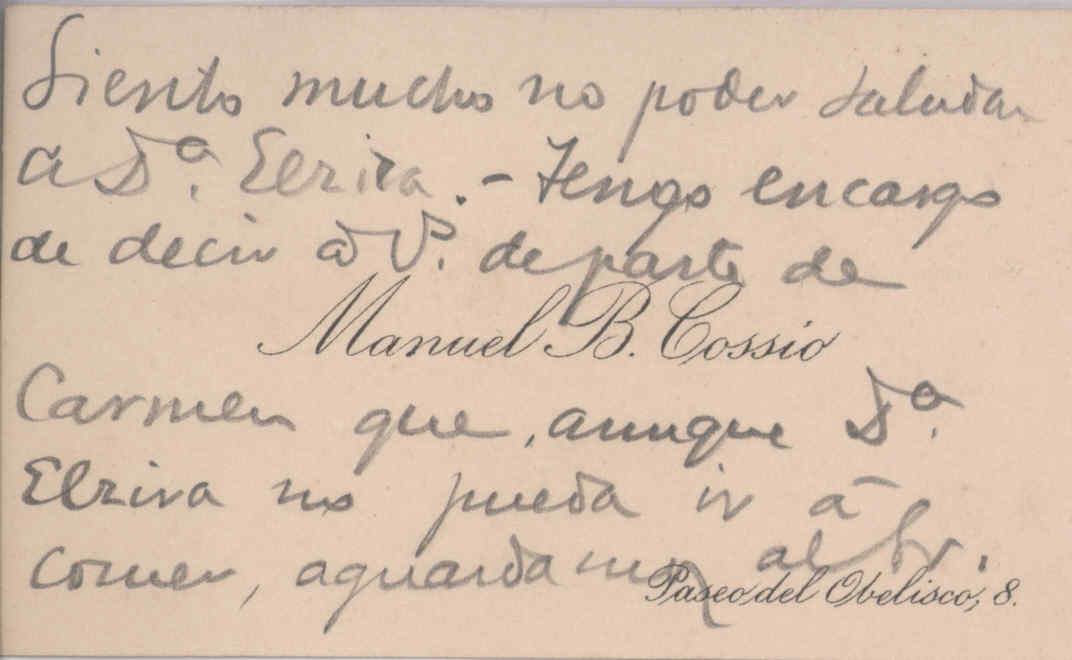 Siento mucho no poder saludar
á Dª. Elzira. - Tengo encargo
de decir á Vº. de parte de
Manuel B. Cossío
Carmen que, aunque Dª.
Elzira no pueda ir á
comer, aguardamos al Sr.
Paseo del Obelisco, 8.